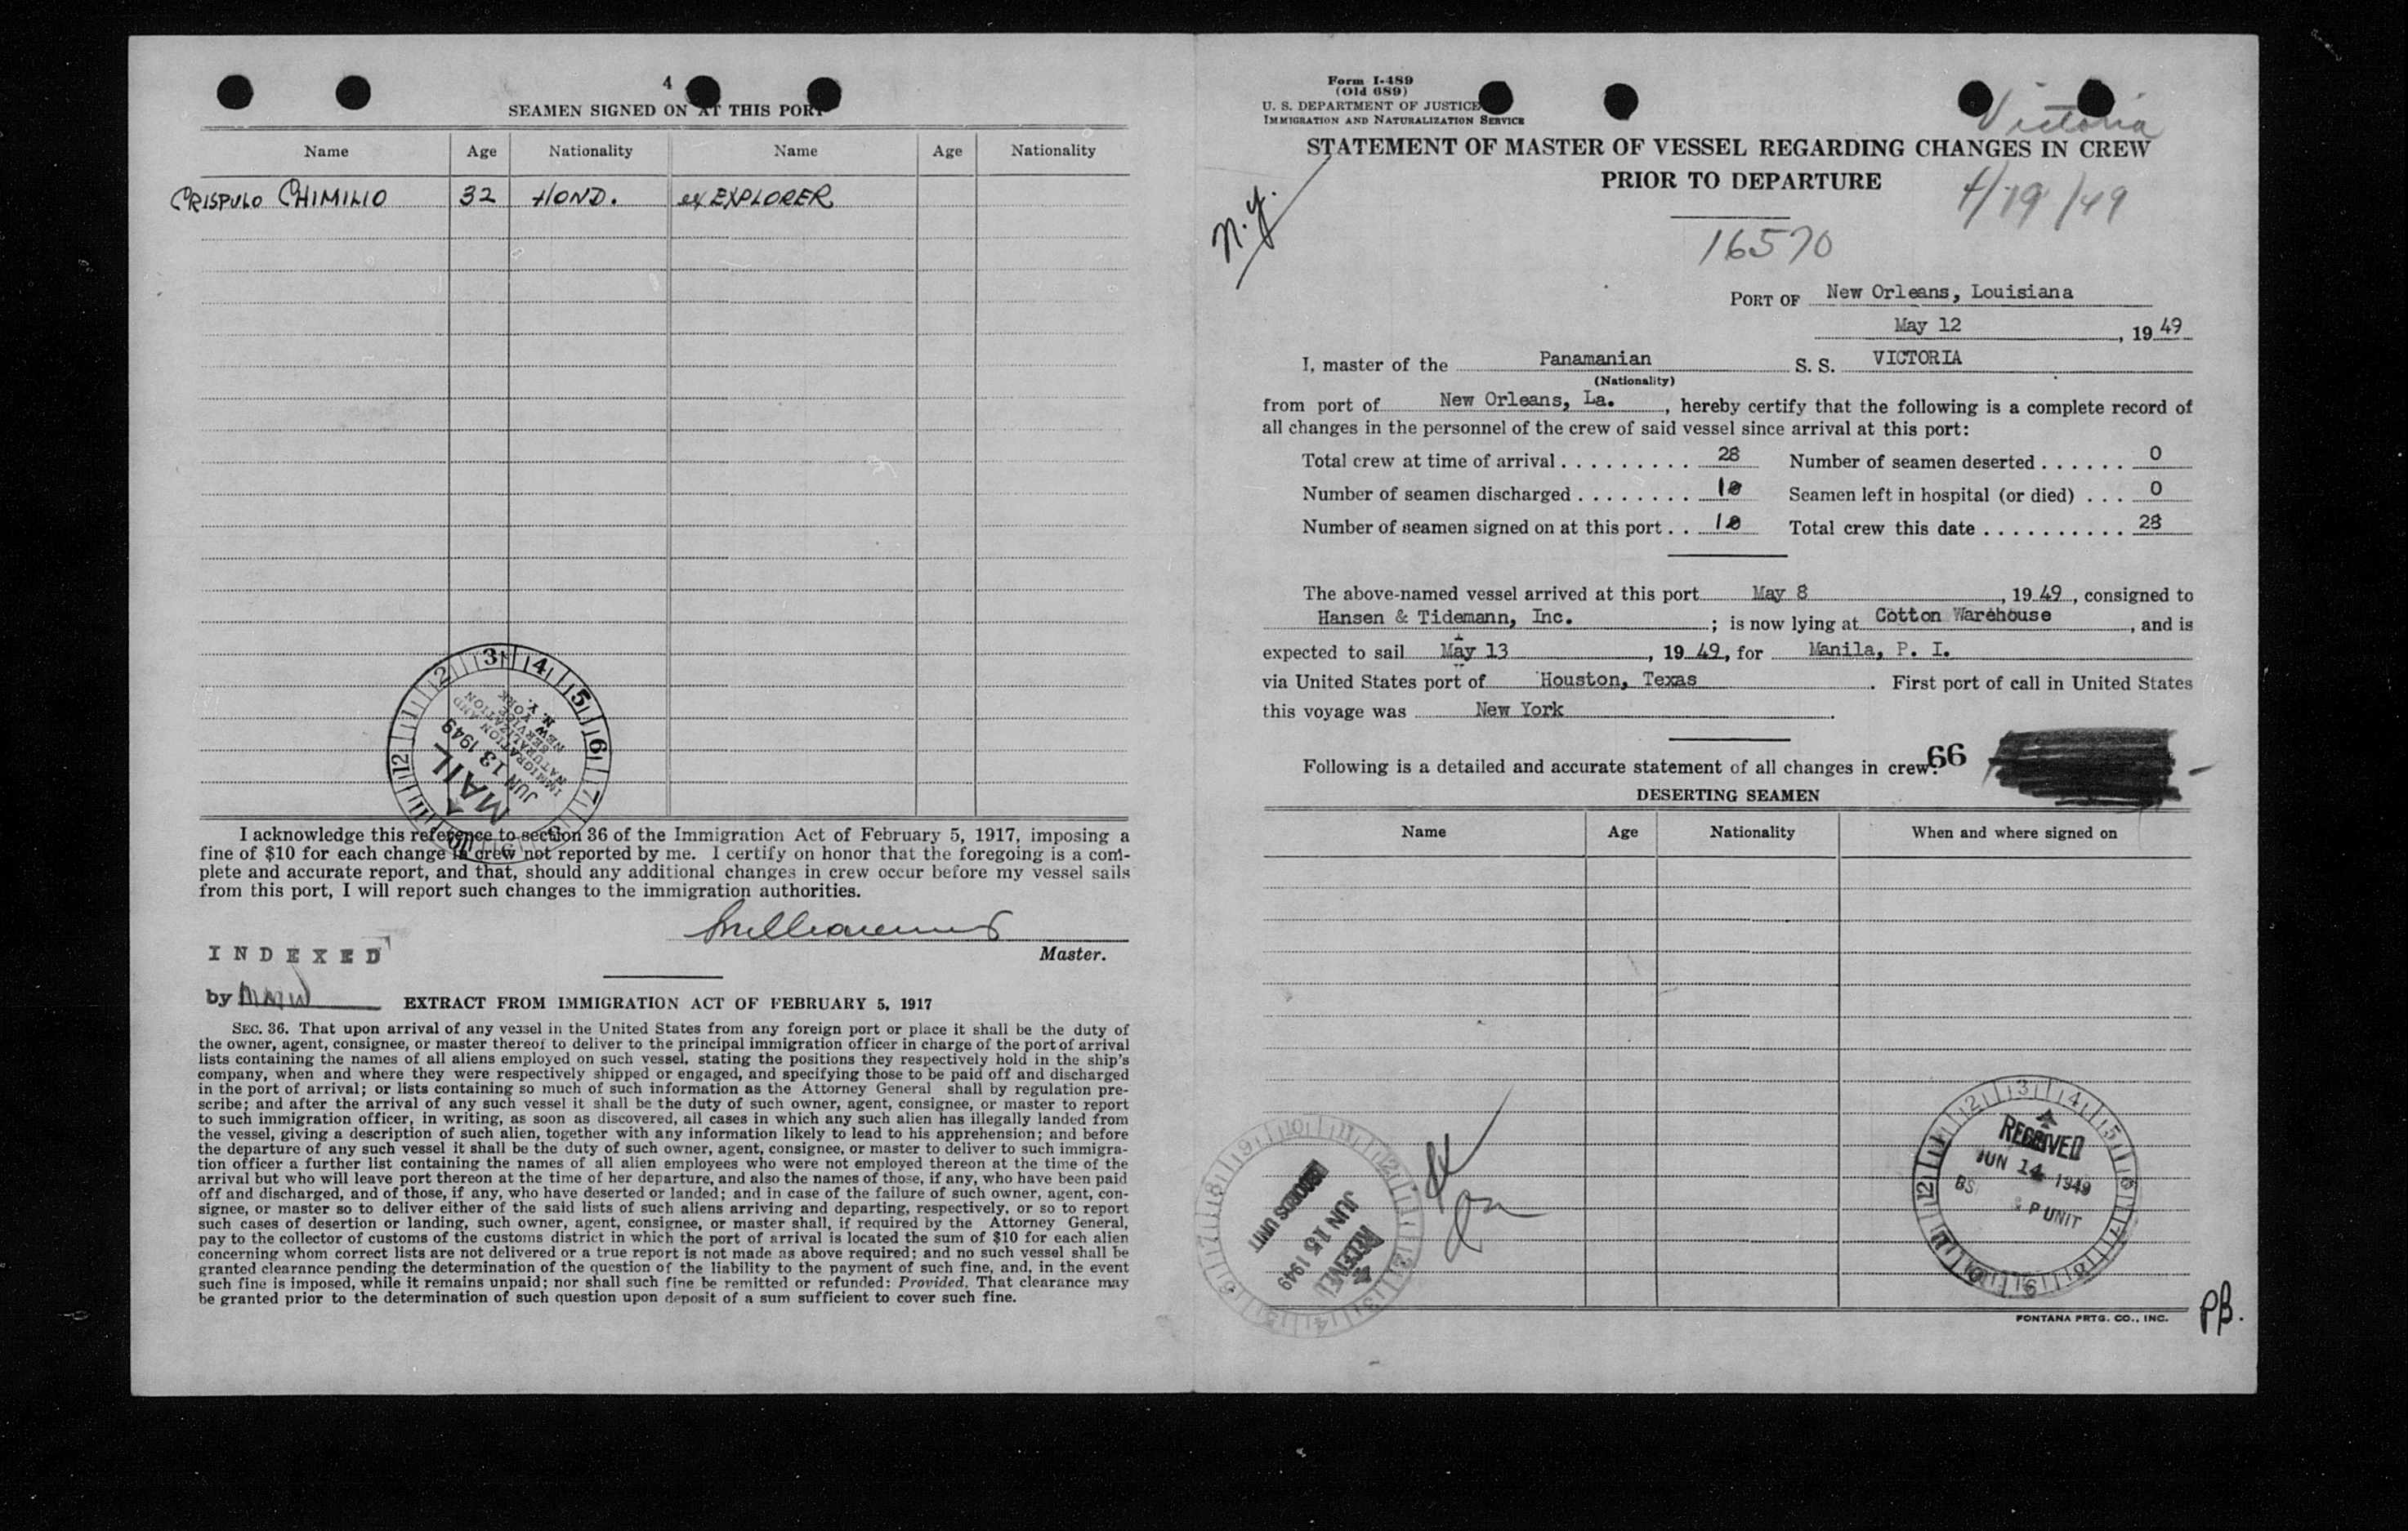 4
SEAMEN SIGNED ON AT THIS PORT
Name Age Nationality Name Age Nationality
CRISPULO CHIMILIO 32 HOND. ex EXPLORER
3 4 5 6 7 9 10 11 12 1 2
IMMIGRATION AND
NATURALIZATION
SERVICE
NEW YORK
N. Y.
JUN 13 1949
MAIL
I acknowledge this reference to section 36 of the Immigration Act of February 5, 1917, imposing a
fine of $10 for each change in crew not reported by me. I certify on honor that the foregoing is a com-
plete and accurate report, and that, should any additional changes in crew occur before my vessel sails
from this port, I will report such changes to the immigration authorities.
Master.
INDEXED
by
EXTRACT FROM IMMIGRATION ACT OF FEBRUARY 5, 1917
SEC. 36. That upon arrival of any vessel in the United States from any foreign port or place it shall be the duty of
the owner, agent, consignee, or master thereof to deliver to the principal immigration officer in charge of the port of arrival
lists containing the names of all aliens employed on such vessel, stating the positions they respectively hold in the ship's
company, when and where they were respectively shipped or engaged, and specifying those to be paid off and discharged
in the port of arrival; or lists containing so much of such information as the Attorney General shall by regulation pre-
scribe; and after the arrival of any such vessel it shall be the duty of such owner, agent, consignee, or master to report
to such immigration officer, in writing, as soon as discovered, all cases in which any such alien has illegally landed from
the vessel, giving a description of such alien, together with any information likely to lead to his apprehension; and before
the departure of any such vessel it shall be the duty of such owner, agent, consignee, or master to deliver to such immigra-
tion officer a further list containing the names of all alien employees who were not employed thereon at the time of the
arrival but who will leave port thereon at the time of her departure, and also the names of those, if any, who have been paid
off and discharged, and of those, if any, who have deserted or landed; and in case of the failure of such owner, agent, con-
signee, or master so to deliver either of the said lists of such aliens arriving and departing, respectively, or so to report
such cases of desertion or landing, such owner, agent, consignee, or master shall, if required by the Attorney General,
pay to the collector of customs of the customs district in which the port of arrival is located the sum of $10 for each alien
concerning whom correct lists are not delivered or a true report is not made as above required; and no such vessel shall be
granted clearance pending the determination of the question of the liability to the payment of such fine, and, in the event
such fine is imposed, while it remains unpaid; nor shall such fine be remitted or refunded: Provided, That clearance may
be granted prior to the determination of such question upon deposit of a sum sufficient to cover such fine.
Form I-489
(Old 689)
U. S. DEPARTMENT OF JUSTICE
IMMIGRATION AND NATURALIZATION SERVICE
Victoria
STATEMENT OF MASTER OF VESSEL REGARDING CHANGES IN CREW
PRIOR TO DEPARTURE
4/19/49
N.Y.
16570
PORT OF New Orleans, Louisiana
May 12, 19 49
I, master of the Panamanian S. S. VICTORIA
(Nationality)
from port of New Orleans, La., hereby certify that the following is a complete record of
all changes in the personnel of the crew of said vessel since arrival at this port:
Total crew at time of arrival . . . . . . . . . . 28 Number of seamen deserted . . . . . . 0
Number of seamen discharged . . . . . . . . Seamen left in hospital (or died) . . . 0
Number of seamen signed on at this port . . Total crew this date . . . . . . . . . . 28
The above-named vessel arrived at this port May 8, 19 49, consigned to
Hansen & Tidemann, Inc. ; is now lying at Cotton Warehouse, and is
expected to sail May 13, 19 49, for Manila, P. I.
via United States port of Houston, Texas. First port of call in United States
this voyage was New York.
66
Following is a detailed and accurate statement of all changes in crew:
DESERTING SEAMEN
Name Age Nationality When and where signed on
RECORDS UNIT
JUN 15 1949
RECEIVED
RECEIVED
JUN 14 1949
BS & P UNIT
FONTANA PRTG. CO., INC.
PB.